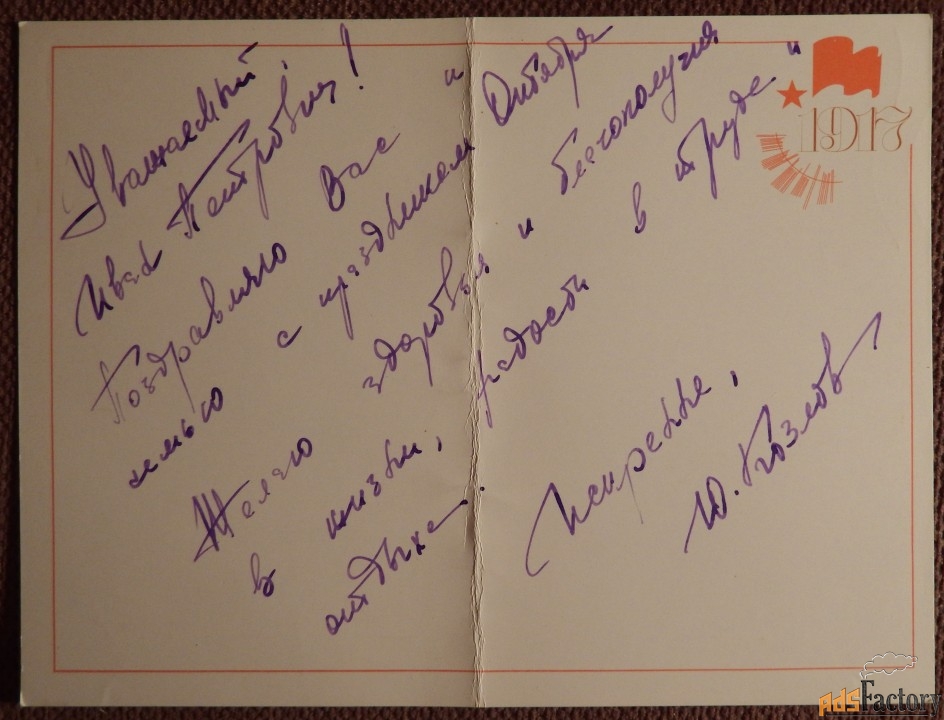 Уважаемый,
Иван Петрович!
Поздравляю Вас и
семью с праздником Октября
Желаю здоровья и благополучия
в жизни, радости в труде и
отдыхе...
Искренне,
Ю. Козлов
1917
AdsFactory